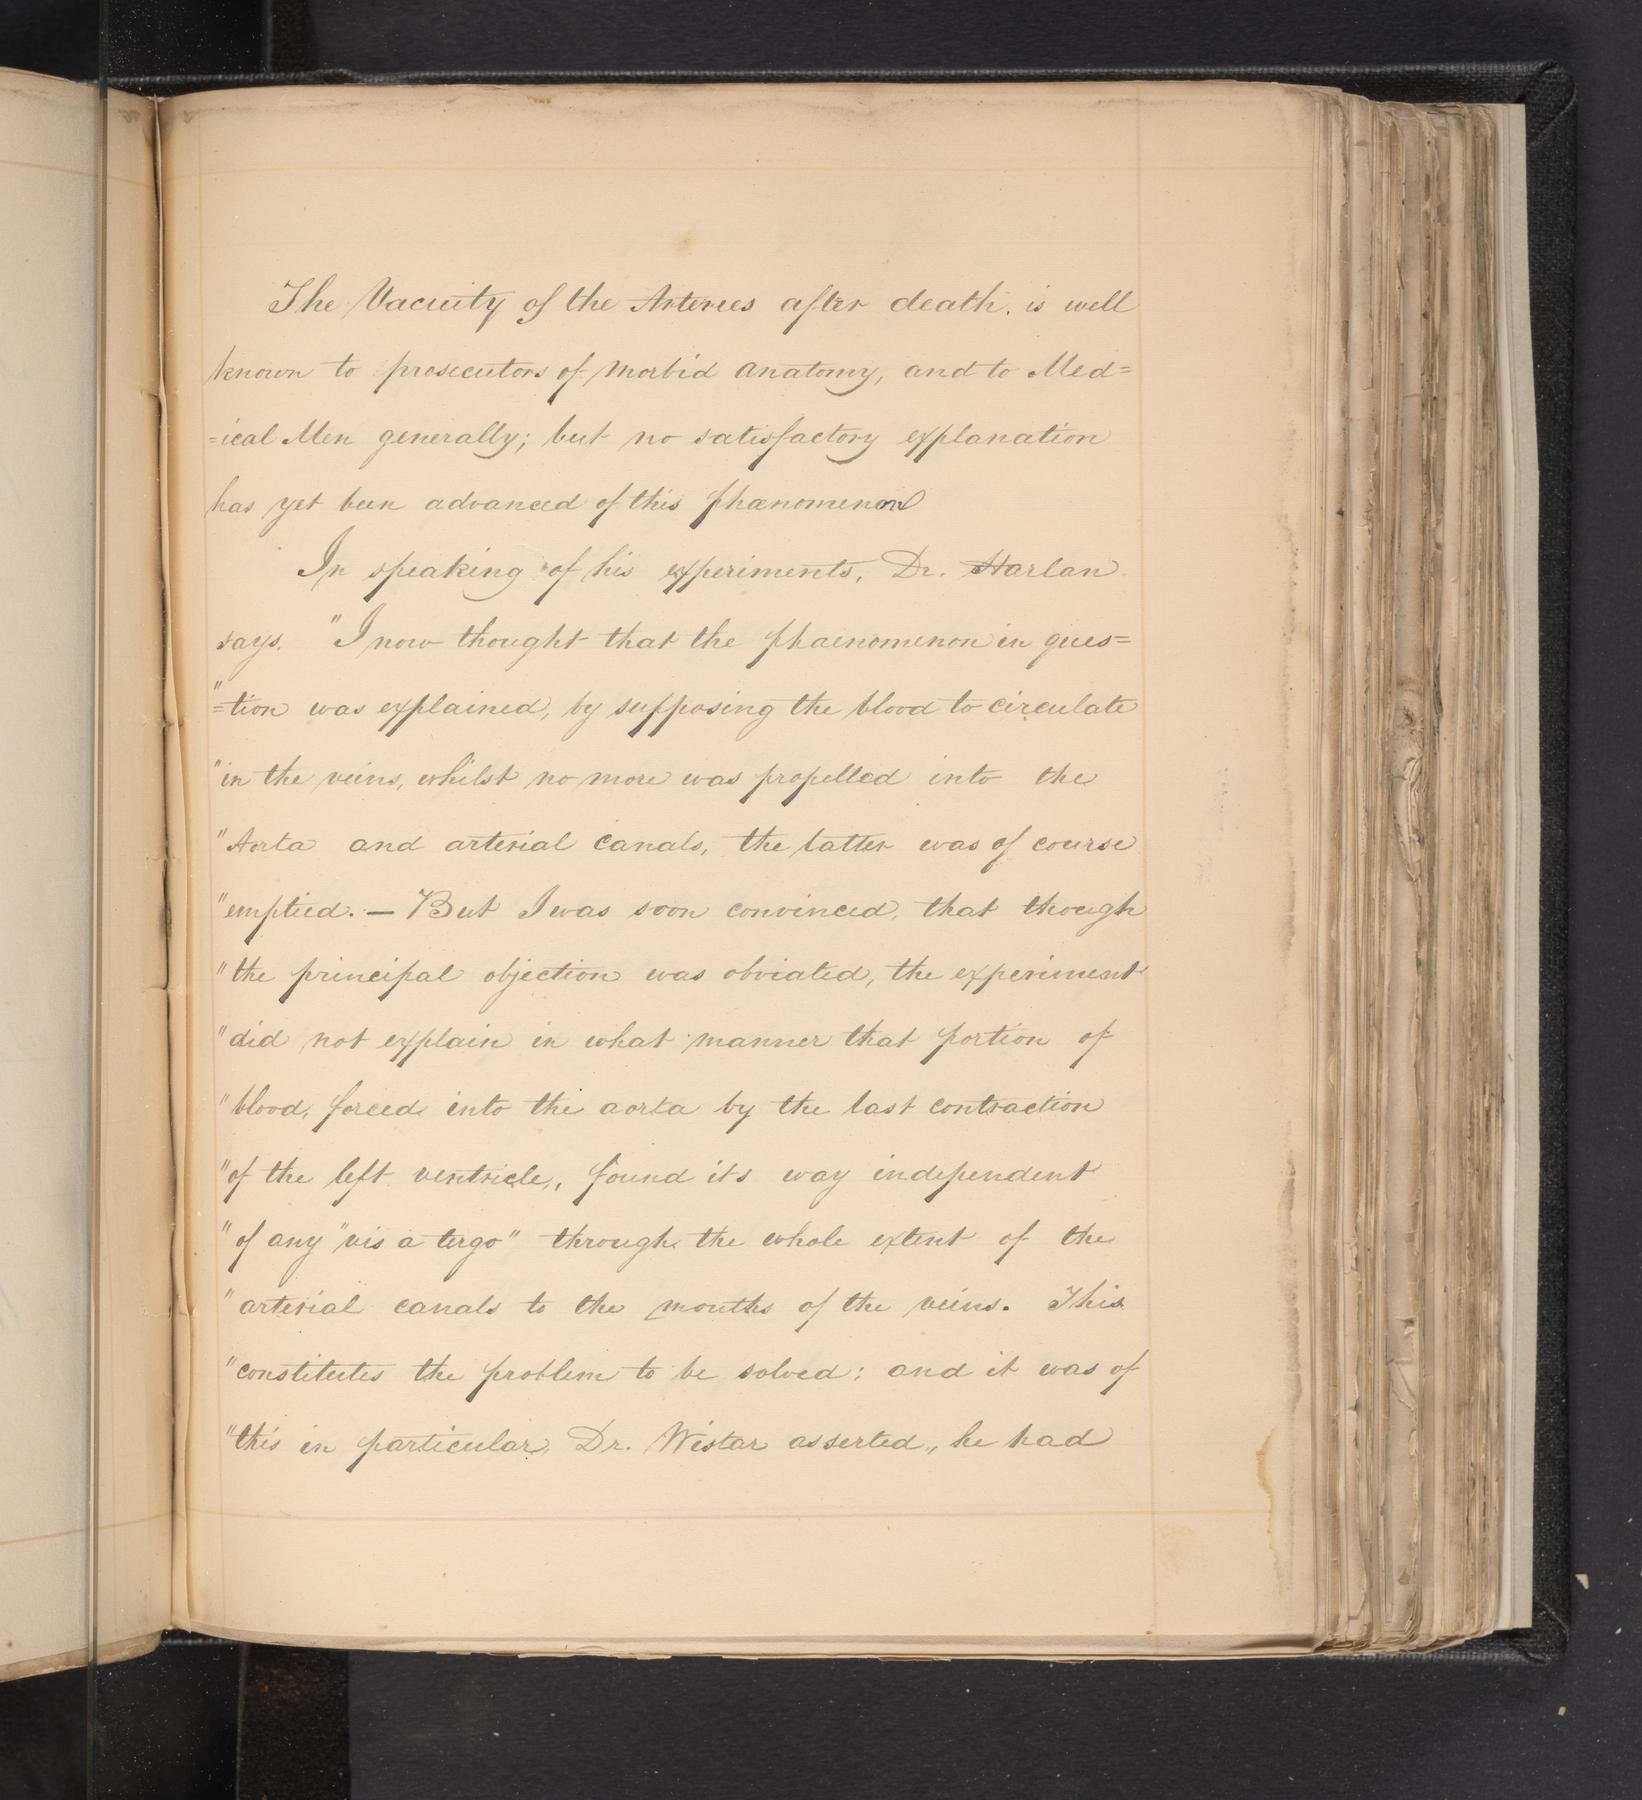 The Vacuity of the Arteries after death, is well
known to prosecutors of morbid anatomy, and to Med=
=ical Men generally; but no satisfactory explanation
has yet been advanced of this phænomenon
In speaking of his experiments, Dr. Harlan
says. "I now thought that the phaenomenon in ques=
"=tion was explained, by supposing the blood to circulate
"in the veins, whilst no more was propelled into the
"Aorta and arterial canals, the latter was of course
"emptied. — But I was soon convinced, that though
"the principal objection was obviated, the experiment
"did not explain in what manner that portion of
"blood, forced into the aorta by the last contraction
"of the left ventricle, found its way independent
"of any "vis a tergo" through the whole extent of the
"arterial canals to the mouths of the veins. This
"constitutes the problem to be solved; and it was of
"this in particular, Dr. Wistar asserted, he had